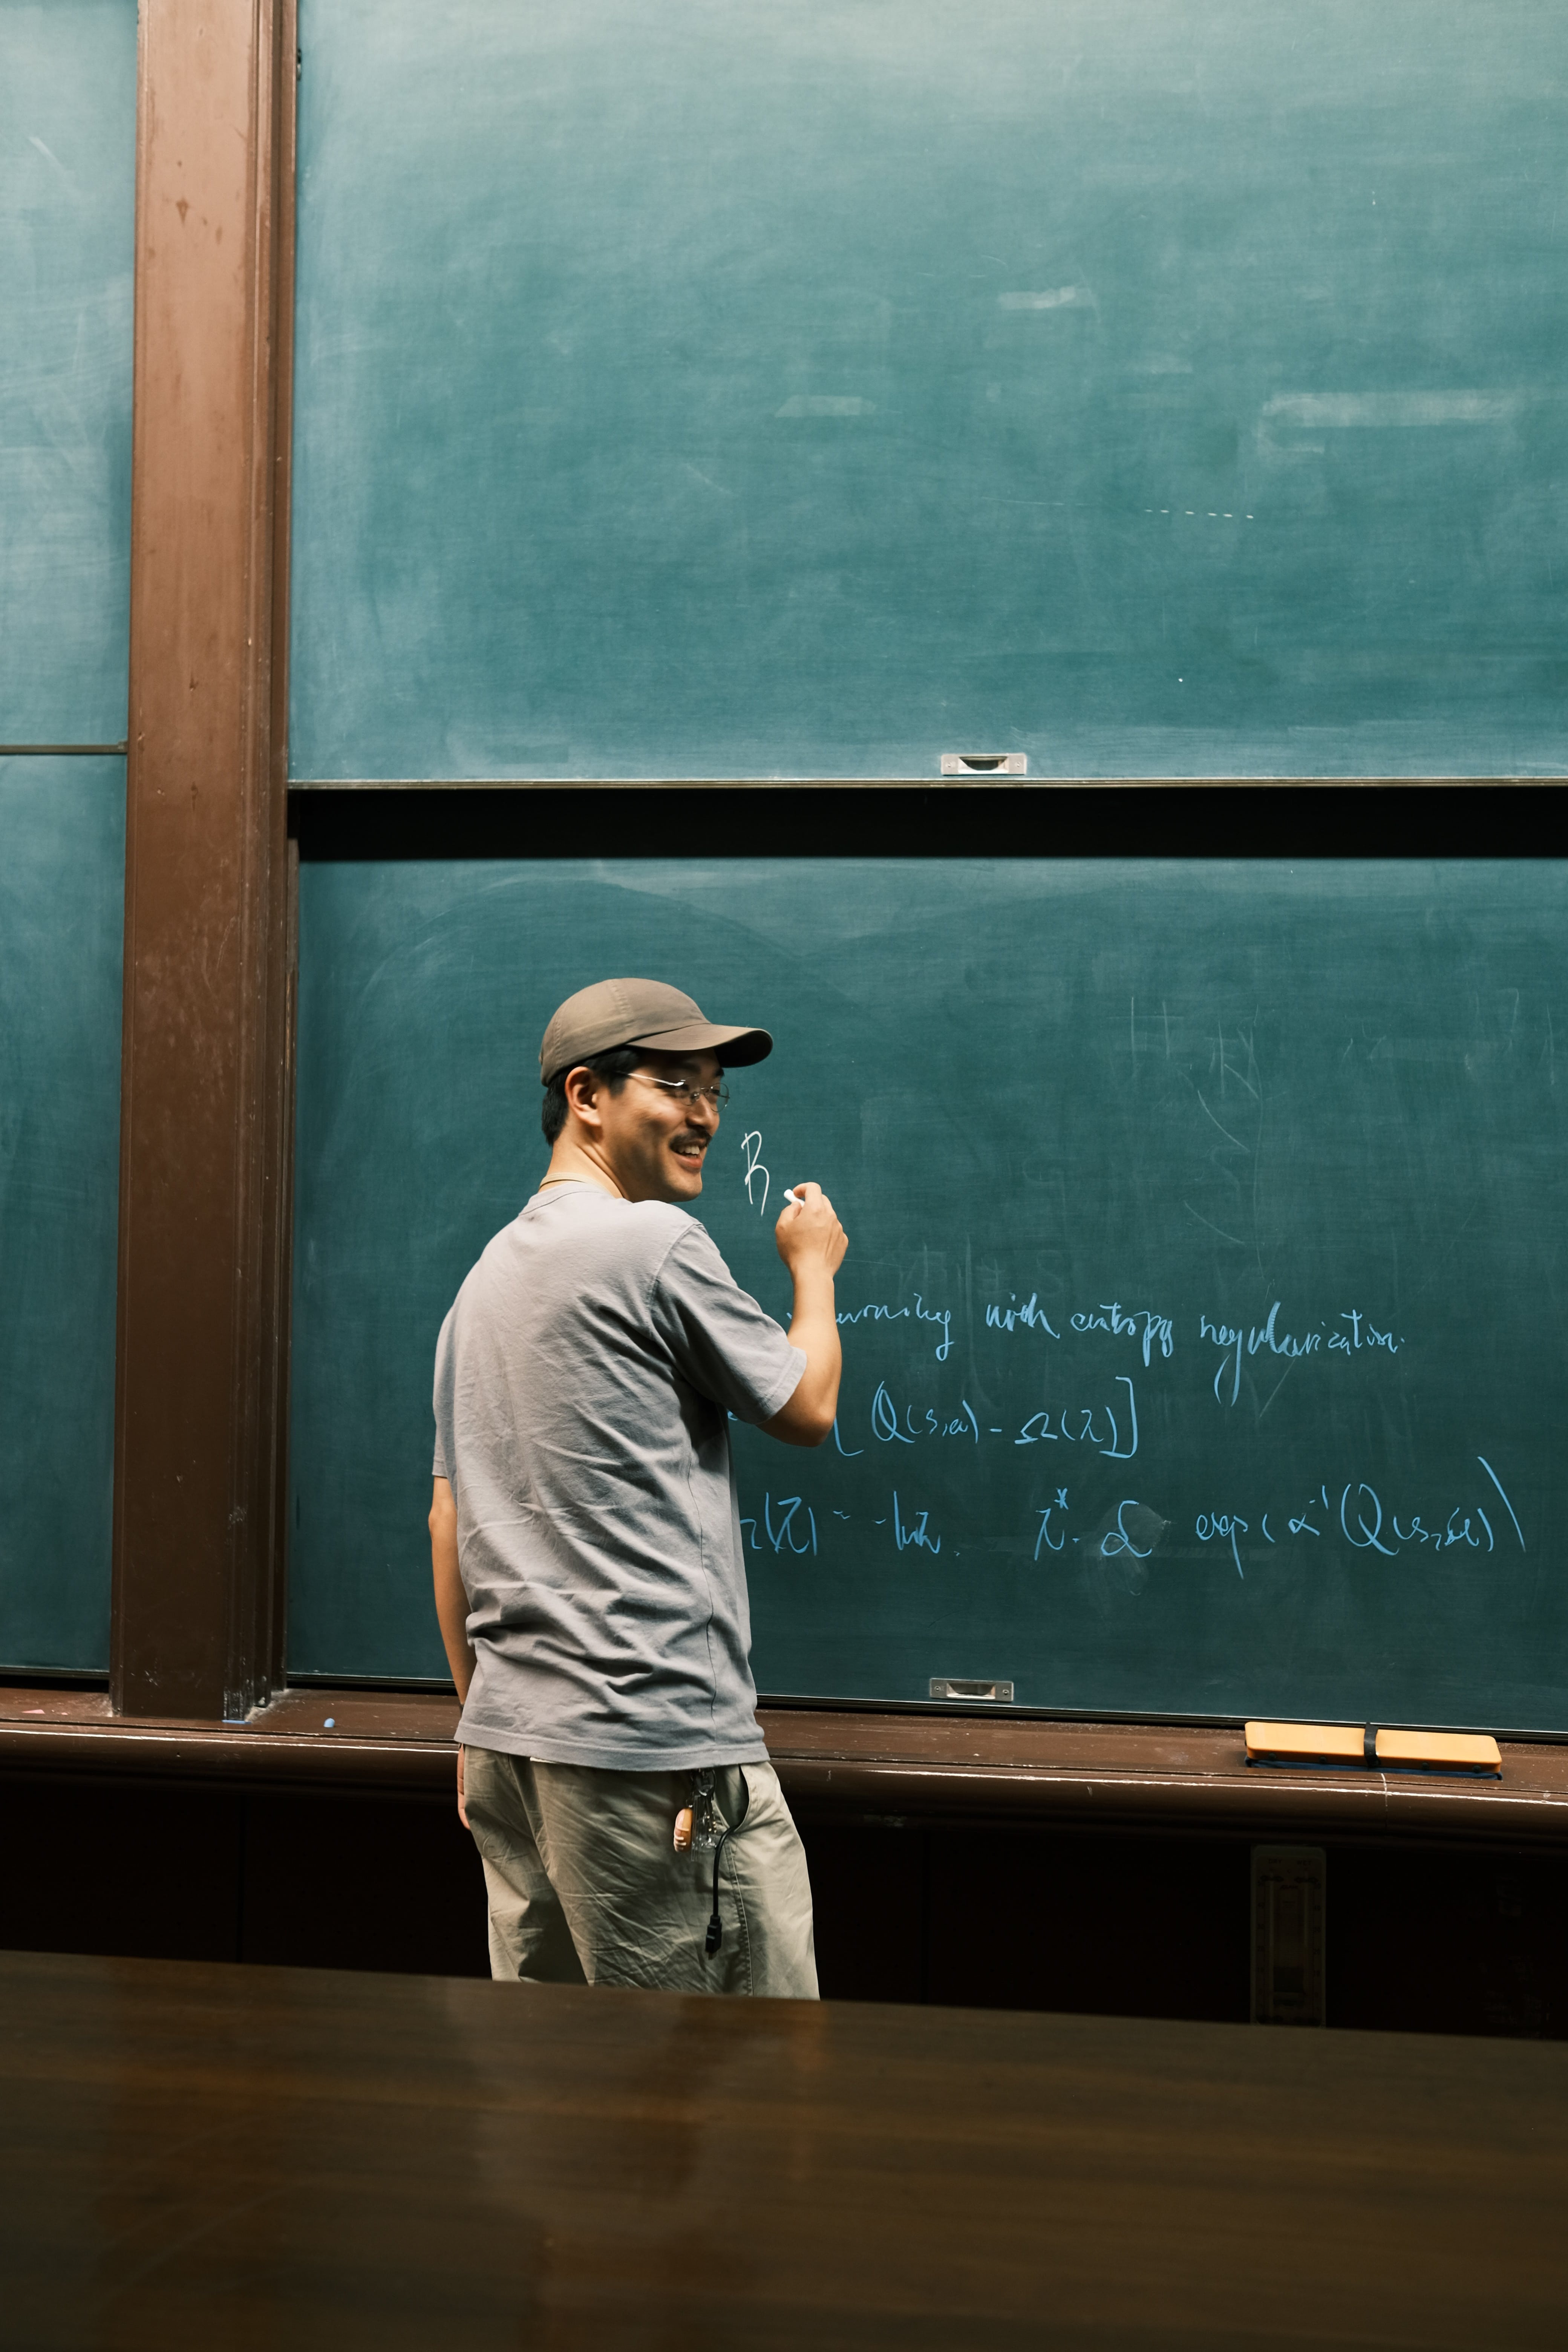 R
with entropy regularization.
[Q(s,a) - Ω(π)]
(π) = -lnπ. π* ∝ exp(α⁻¹(Q(s,a))